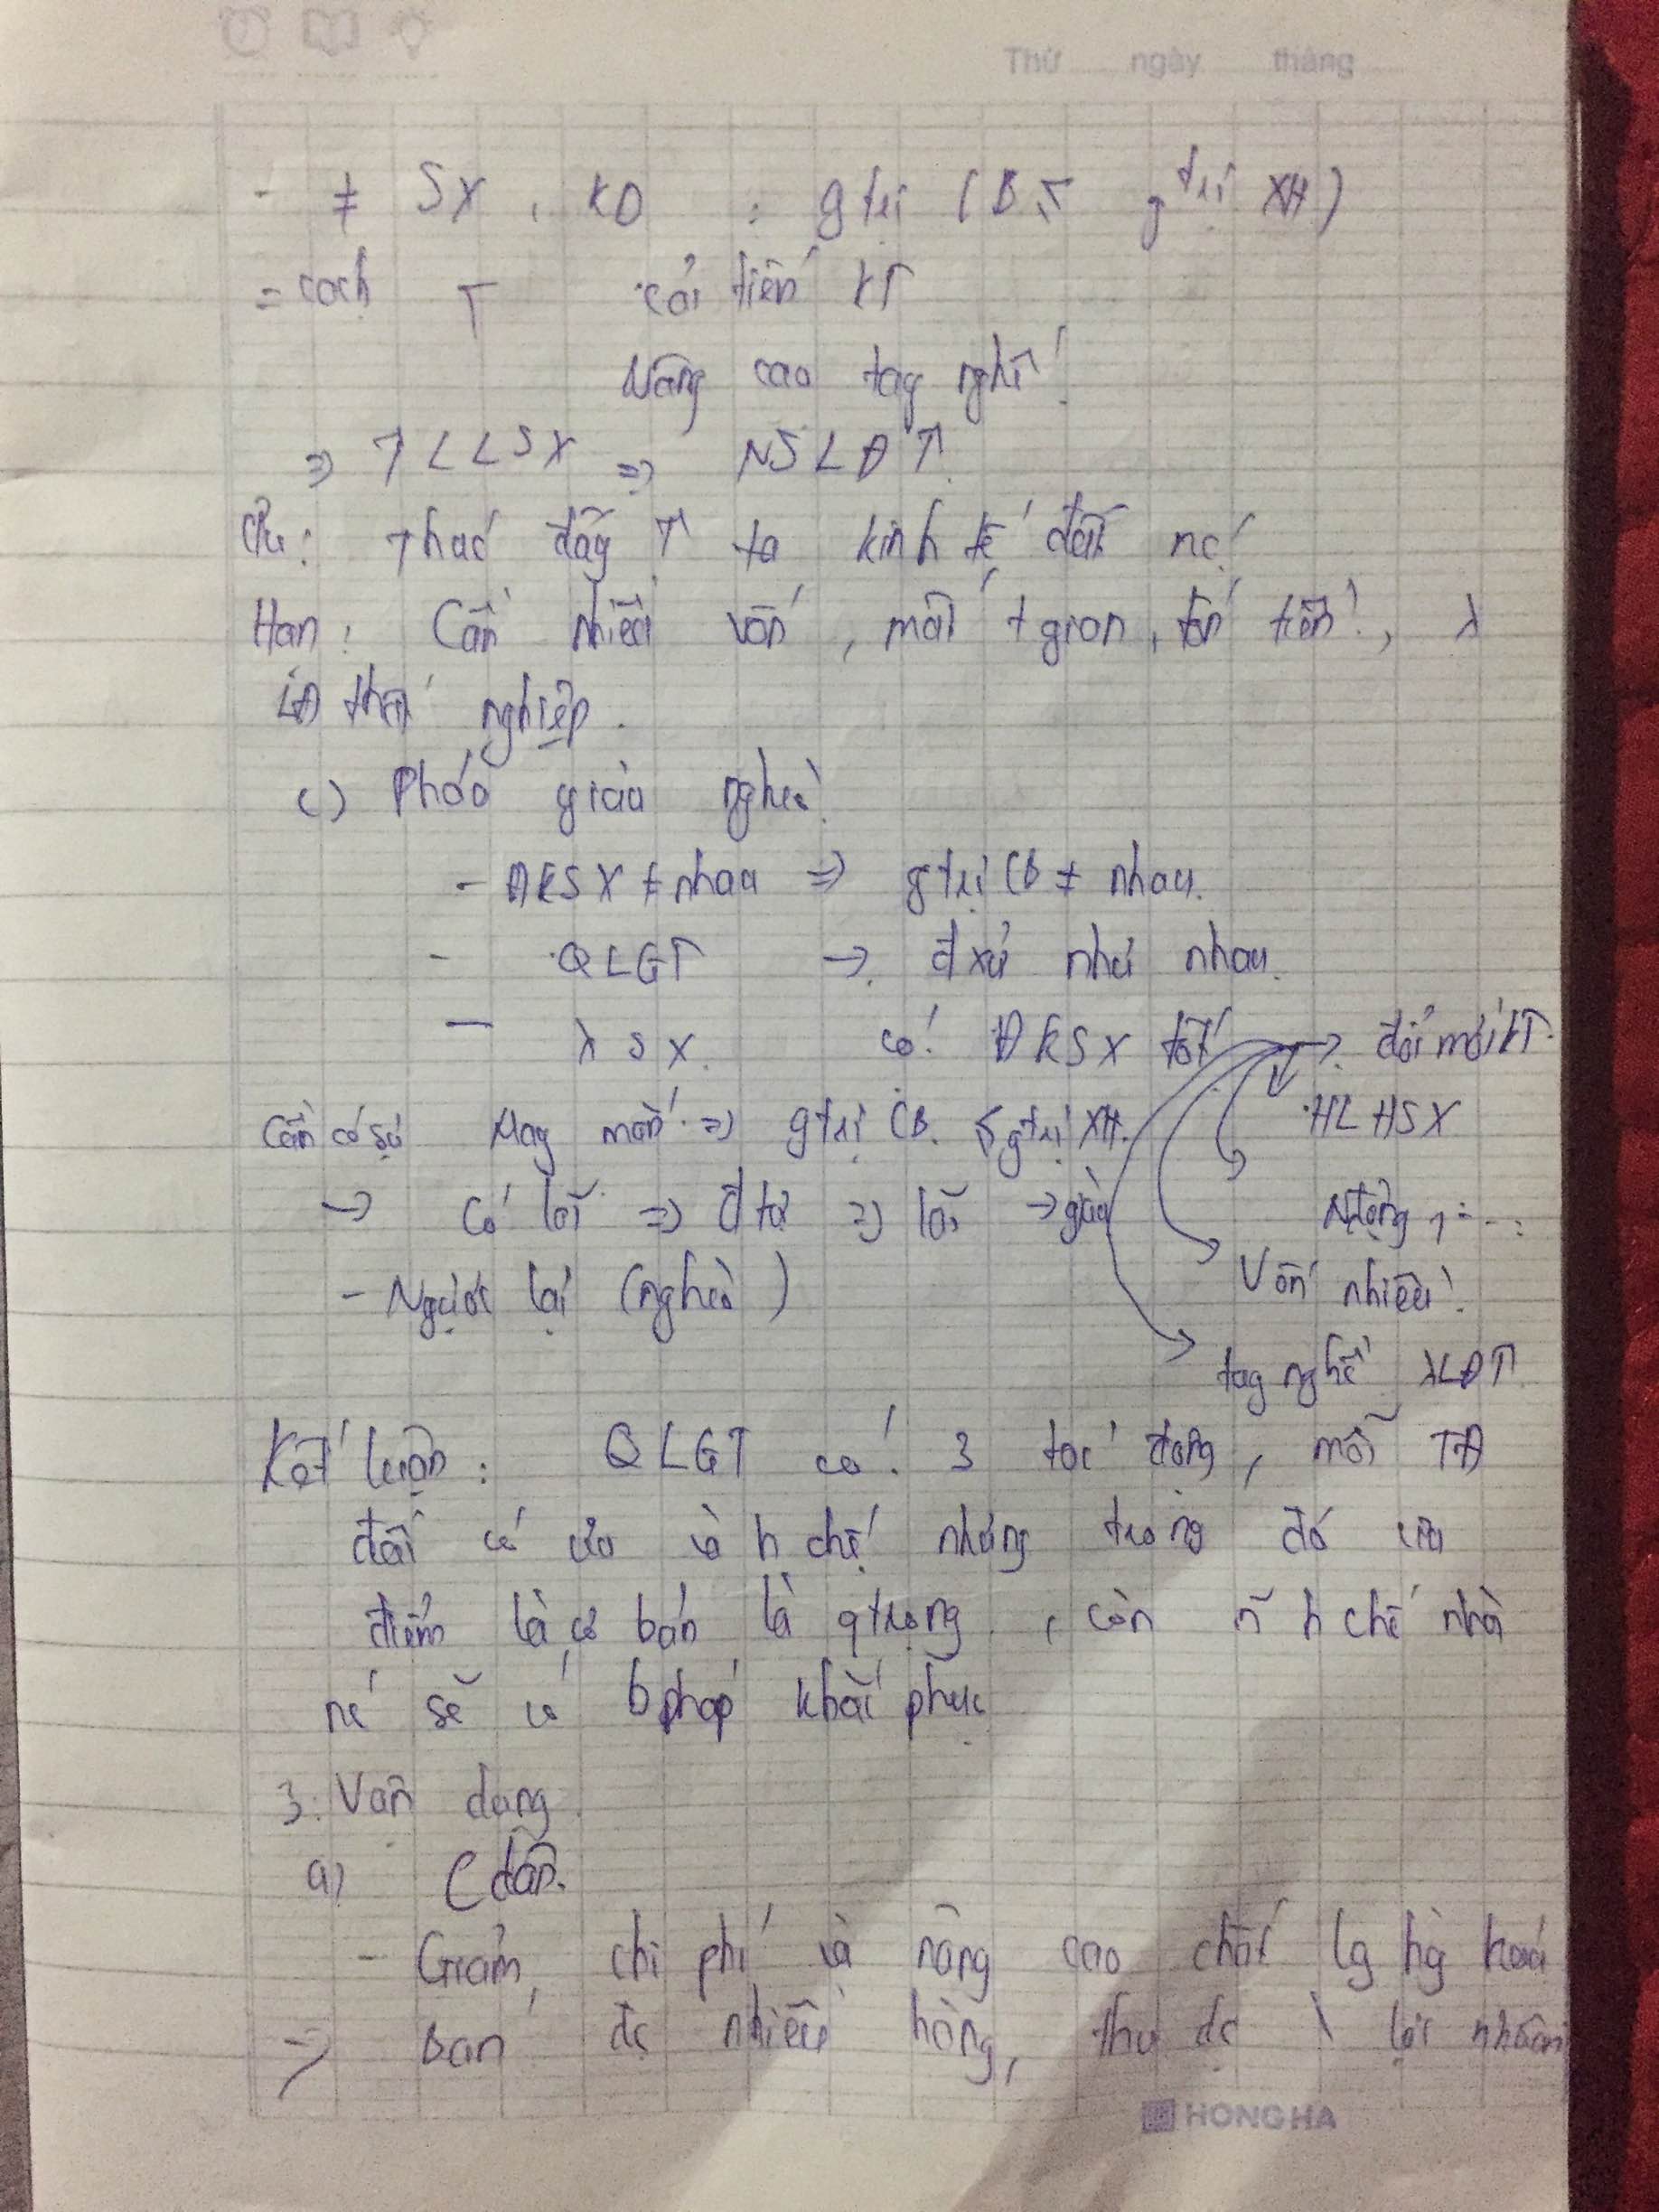 Thứ ngày tháng
- ≠ SX, KD : gtrị CB ≤ gtrị XH)
= cách ↑ cải tiến KT
Nâng cao tay nghề
=> ↑ LLSX => NSLĐ ↑.
Ưu: Thúc đẩy ↑ ta kinh tế đất nc
Hạn: Cần nhiều vốn, mất tgian, tốn tiền, λ
LĐ thất nghiệp.
c) Phâ giàu nghèo
- ĐKSX ≠ nhau => gtrị CB ≠ nhau.
- QLGT -> đ xử như nhau.
- λ SX. có ĐKSX tốt -> đổi mới KT.
HLHSX
Cần có sự May mắn => gtrị CB. ≤ gtrị XH.
-> Có lãi => Đ tư => lãi -> giàu
Nđộng, ...
Vốn nhiều
- Ngược lại (nghèo)
tay nghề λLĐ↑
Kết luận: QLGT có 3 tác động, mỗi TĐ
đều có ưu và h chế nhưng trong đó ưu
điểm là cơ bản là qtrọng, còn n~ h chế nhà
nc sẽ có bpháp khắc phục
3. Vận dụng
a) C dân.
- Giảm chi phí và nâng cao chất lg hg hoá
=> Bán đc nhiều hàng, thu đc λ lợi nhuận
HONG HA